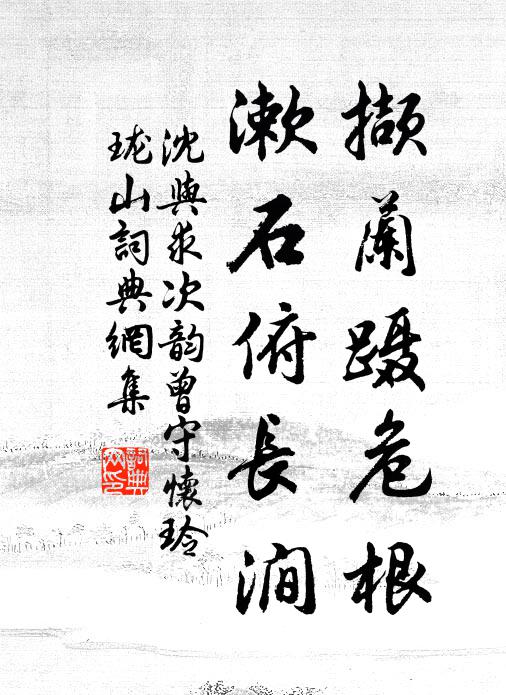 擷蘭躡危根
漱石俯長澗
沈與求次韵曾守懷玲
瓏山詞典網集
詞典网印